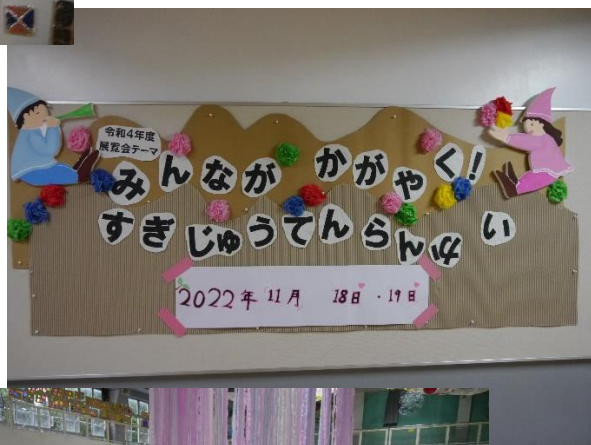 令和4年度
展覧会テーマ
みんなが かがやく!
すぎじゅうてんらんかい
2022年 11月 18日・19日